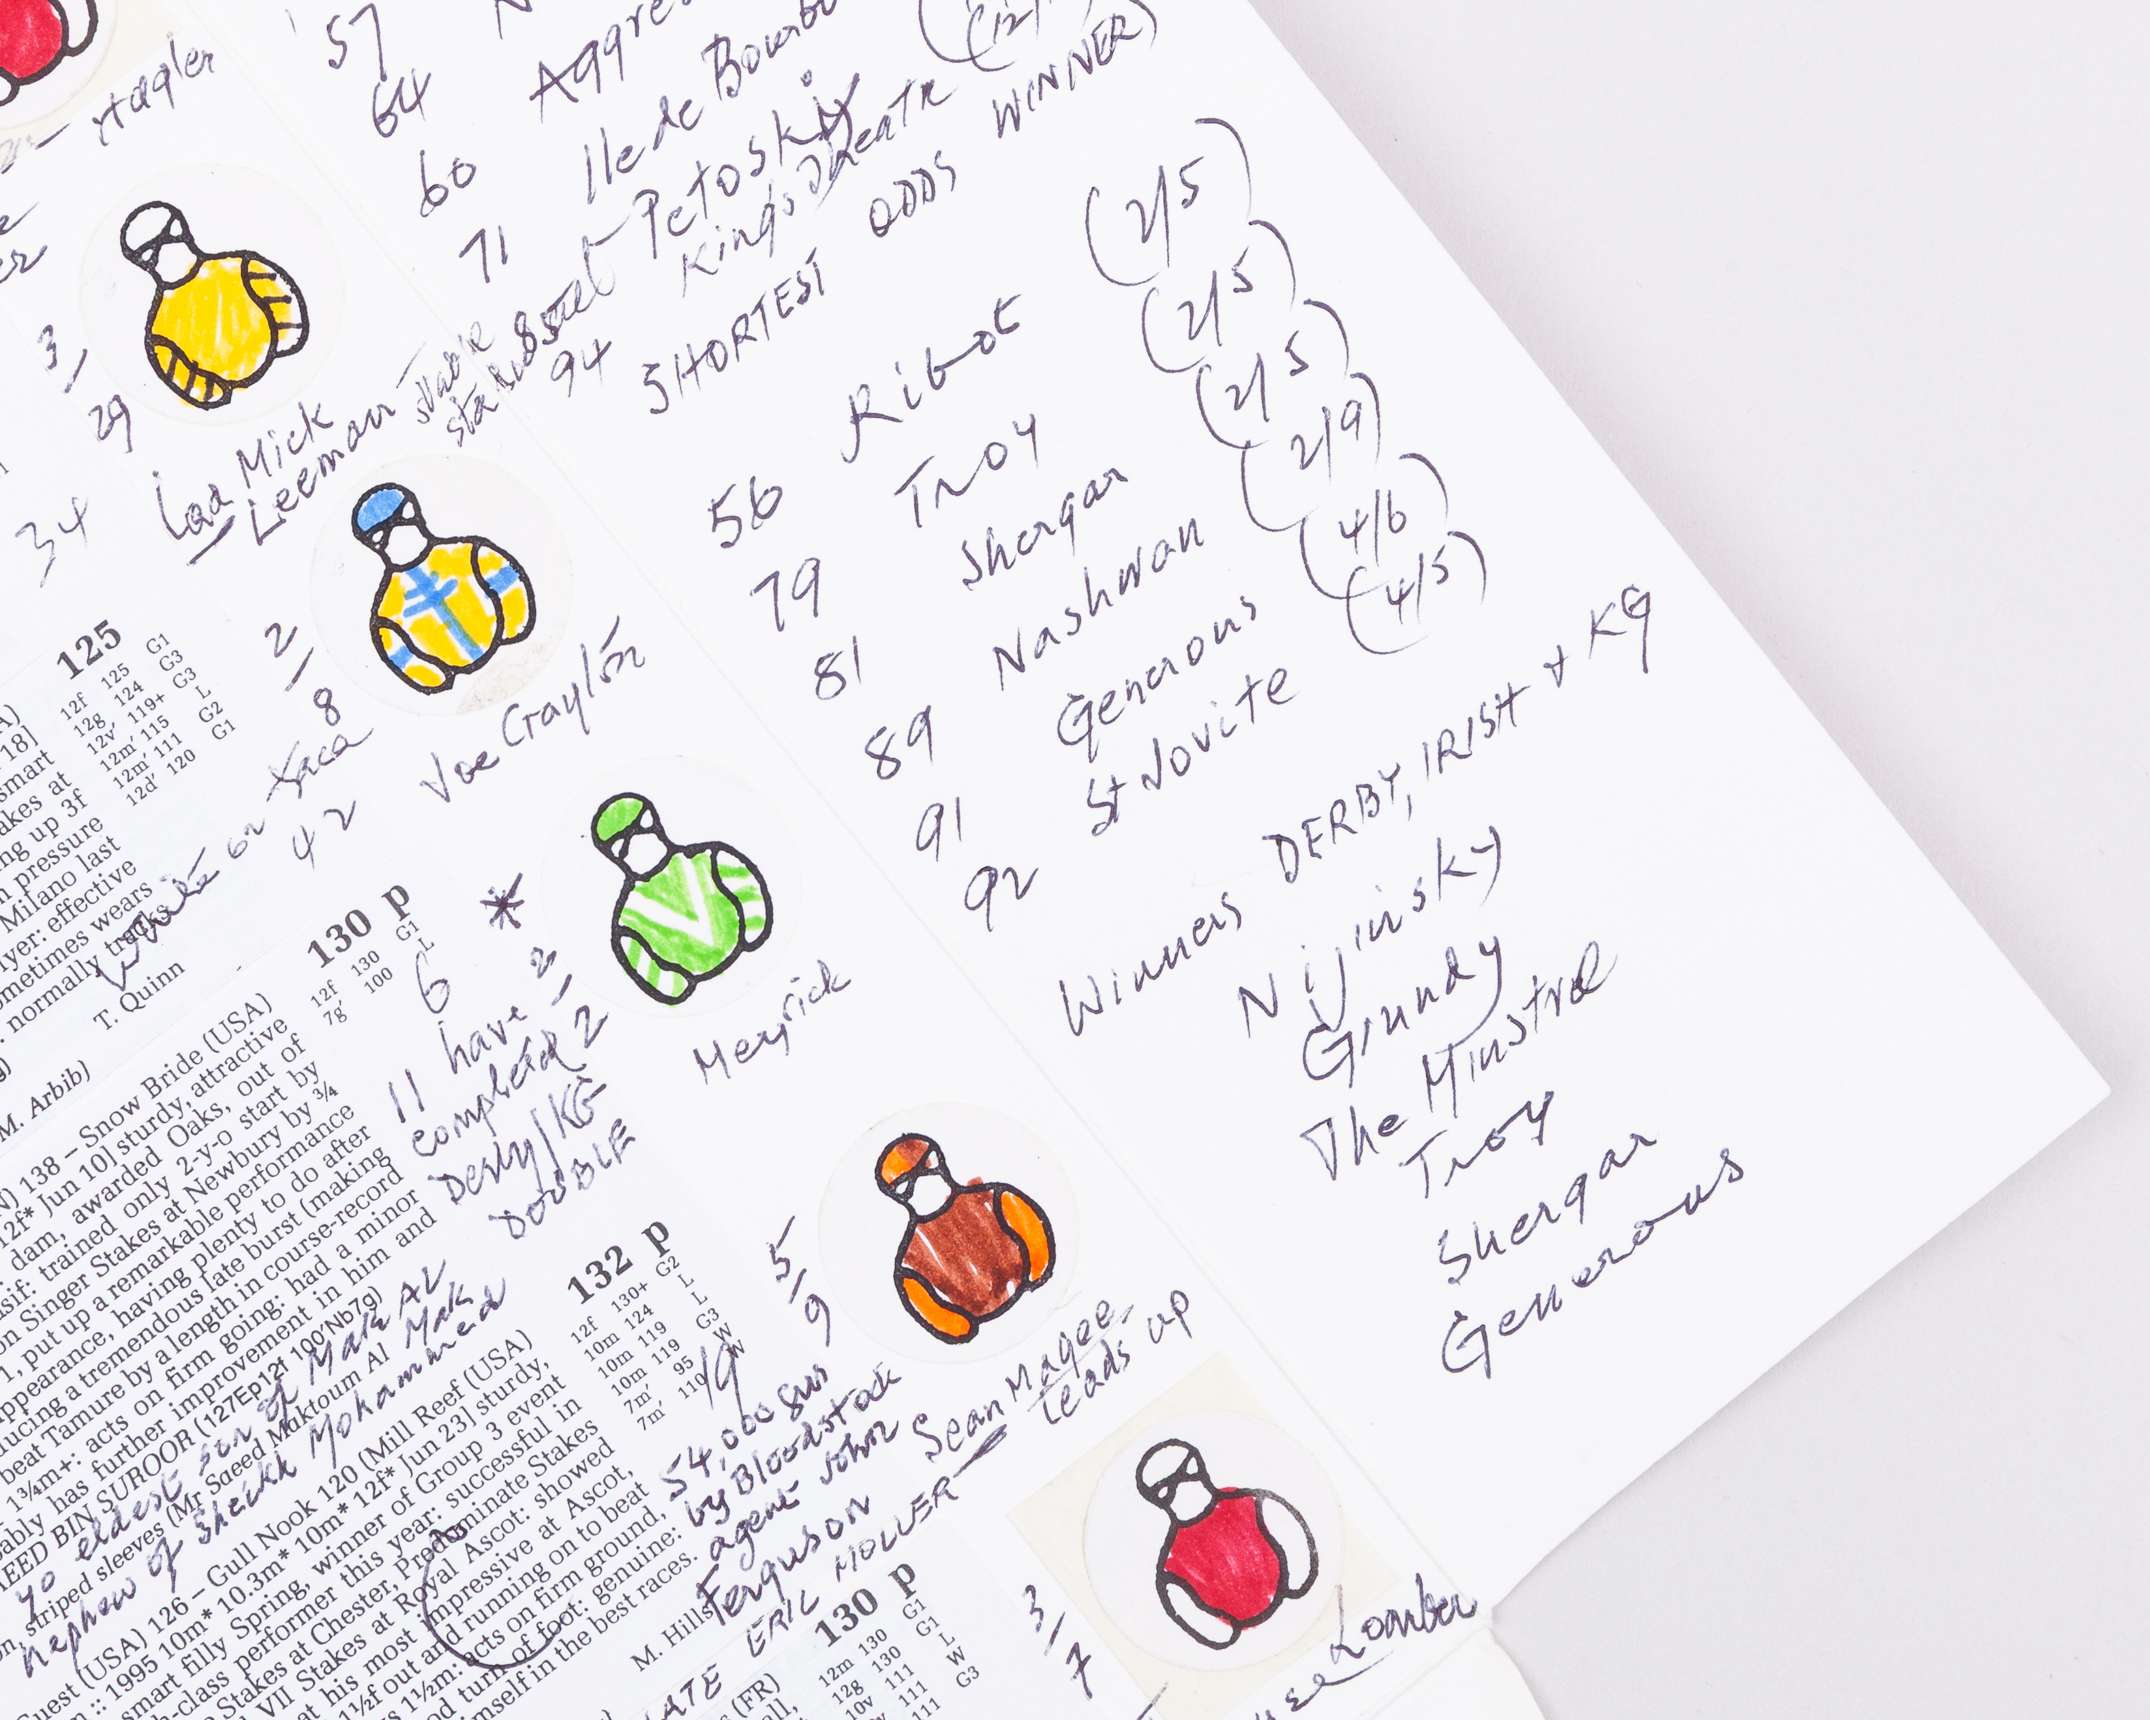 57
64
60
71
94
Ile de Bourbo
Petoski
SHORTEST ODDS WINNER)
56 Ribot (2/5)
79 Troy (2/5)
81 Shergar (2/5)
89 Nashwan (2/9)
91 Generous (4/6)
92 St Jovite (4/5)
Winners DERBY, IRISH + KG
Nijinsky
Grundy
The Minstrel
Troy
Shergar
Generous
3
29
34
Mick
Leeman
125
12f 125 G1
12g 124 G3
12v' 119+ G3
12m' 115 L
12m' 111 G2
12d' 120 G1
18]
smart
akes at
ng up 3f
n pressure
Milano last
yer: effective
ometimes wears
normally tracks
T. Quinn
M. Arbib)
2
8
42
130 p
12f 130 G1
7g' 100 L
6
11 have
completed
Derby/KG
DOUBLE
2
2
Meyrick
138 – Snow Bride (USA)
12f* Jun 10] sturdy, attractive
dam, awarded Oaks, out of
sif: trained only 2-y-o start by
on Singer Stakes at Newbury by ¾
1, put up a remarkable performance
appearance, having plenty to do after
ducing a tremendous late burst (making
beat Tamure by a length in course-record
1¾m+: acts on firm going: had a minor
ably has further improvement in him and
EED BIN SUROOR (127Ep12f 100'Nb7g)
striped sleeves (Mr Saeed Maktoum Al
eldest son of Maktoum Al Mak
nephew of Sheikh Mohammed
132 p
12f 130+ G2
10m 124 L
10m 119 L
10m 119 G3
7m' 95 W
7m' 110 W
5
9
19
54,000 gns
by Bloodstock
agent John
Ferguson
uest (USA) 126 – Gull Nook 120 (Mill Reef (USA)
:: 1995 10m* 10.3m* 10m* 12f* Jun 23] sturdy,
smart filly Spring, winner of Group 3 event
h-class performer this year: successful in
Stakes at Chester, Predominate Stakes
VII Stakes at Royal Ascot: showed
at his most impressive at Ascot,
1½f out and running on to beat
1½m: acts on firm ground,
nd turn of foot: genuine:
imself in the best races.
M. Hills
LATE ERIC MOLLER
Sean Magee
leads up
130 p
12m 130 G1
12g 130 G1
10v 111 L
111 W
111 G3
(FR)
3
7